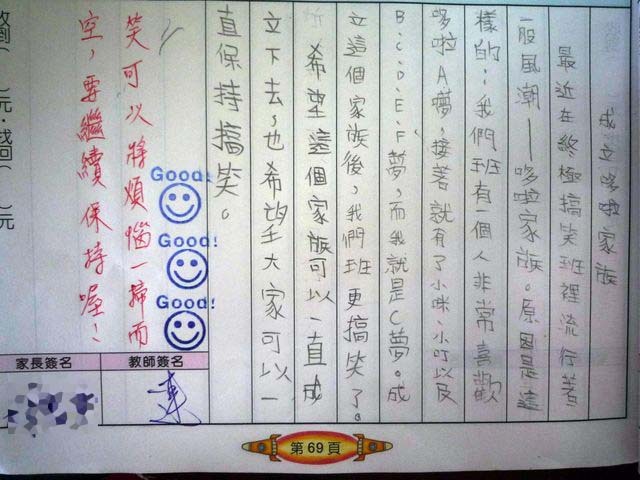 成立哆啦家族
最近在終極搞笑班裡流行著
一股風潮——哆啦家族。原因是這
樣的:我們班有一個人非常喜歡
哆啦A夢,接著就有了小咪、小叮以及
B、C、D、E、F夢,而我就是C夢。成
立這個家族後,我們班更搞笑了。
希望這個家族可以一直成
立下去,也希望大家可以一
直保持搞笑。
Good!
Good!
Good!
笑可以將煩惱一掃而
空,要繼續保持喔!
教師簽名
家長簽名
第69頁